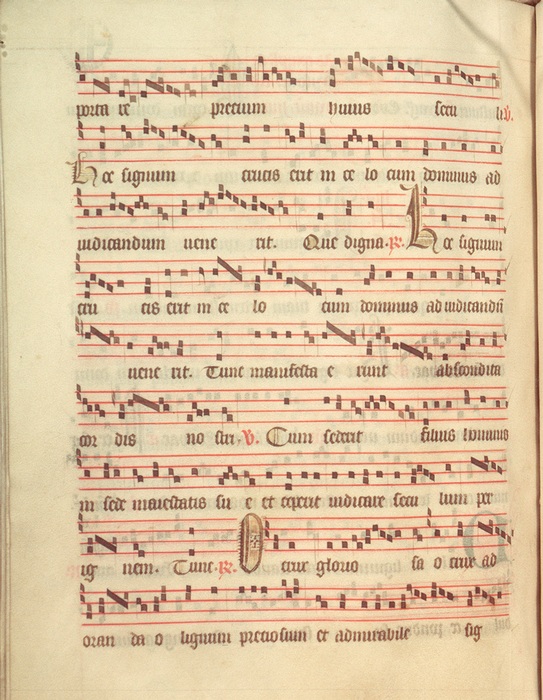 porta re precium huius secu li. V.
Hoc signum crucis erit in ce lo cum dominus ad
iudicandum uene rit. Que digna. R. Hoc signum
cru cis erit in ce lo cum dominus ad iudicandū
uene rit. Tunc manifesta e runt abscondita
cor dis no stri. V. Cum sederit filius hominis
in sede maiestatis su e et ceperit iudicare secu lum per
ig nem. Tunc. R. O crux glorio sa o crux ad
oran da o lignum preciosum et admirabile sig